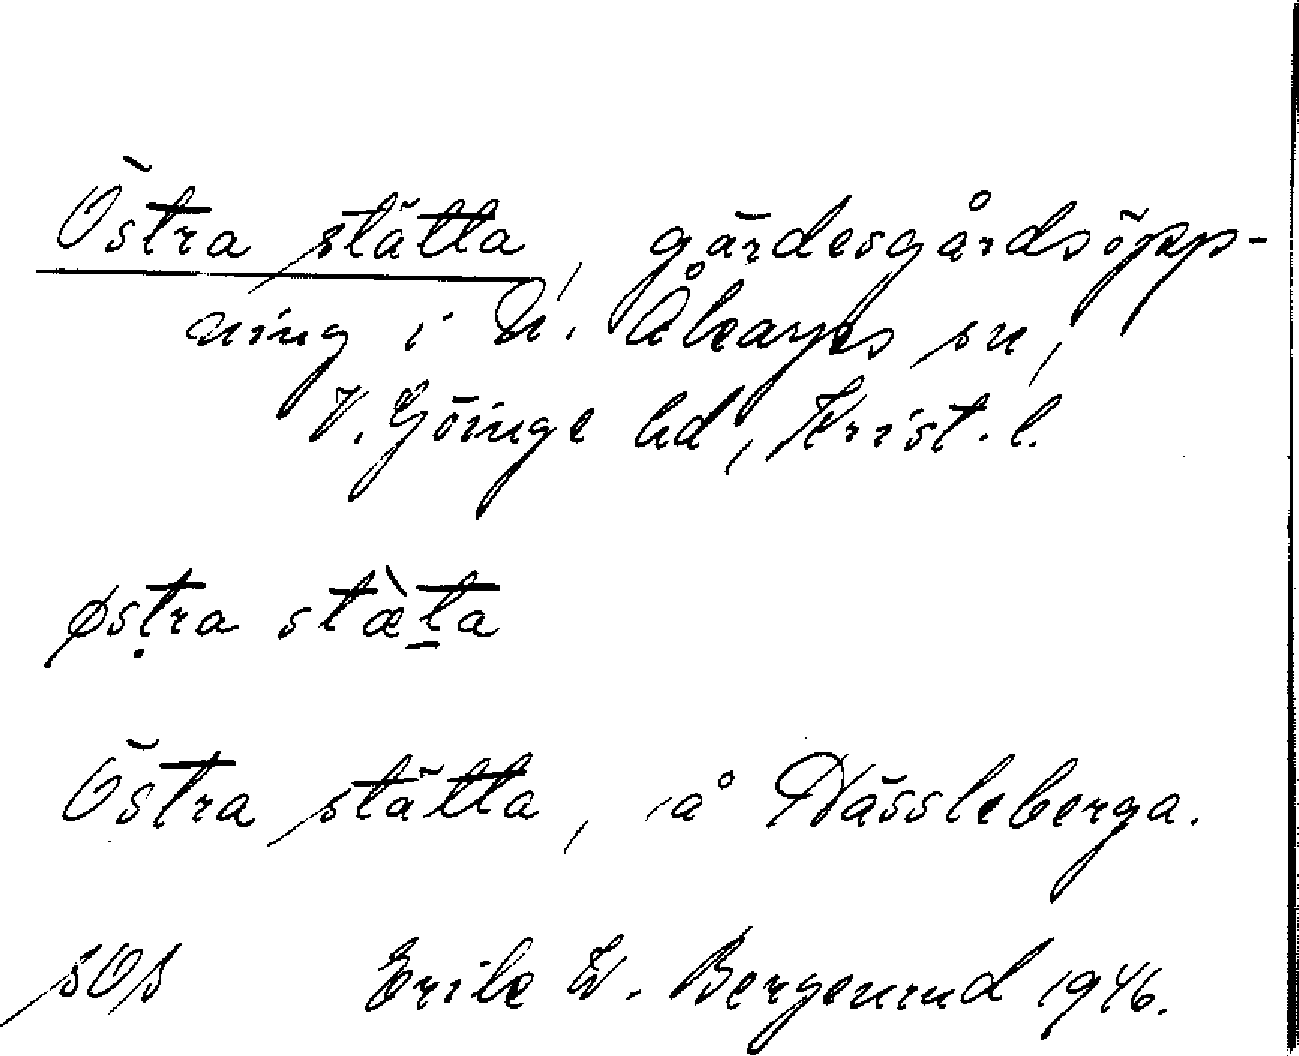 Östra stätta, gärdesgårdsöpp-
ning i N. Åkarps sn,
V. Göinge hd, Krist. l.
østra stæ̀ta
Östra stätta, å Nässleberga.
SOS Erik W. Bergenrud 1946.